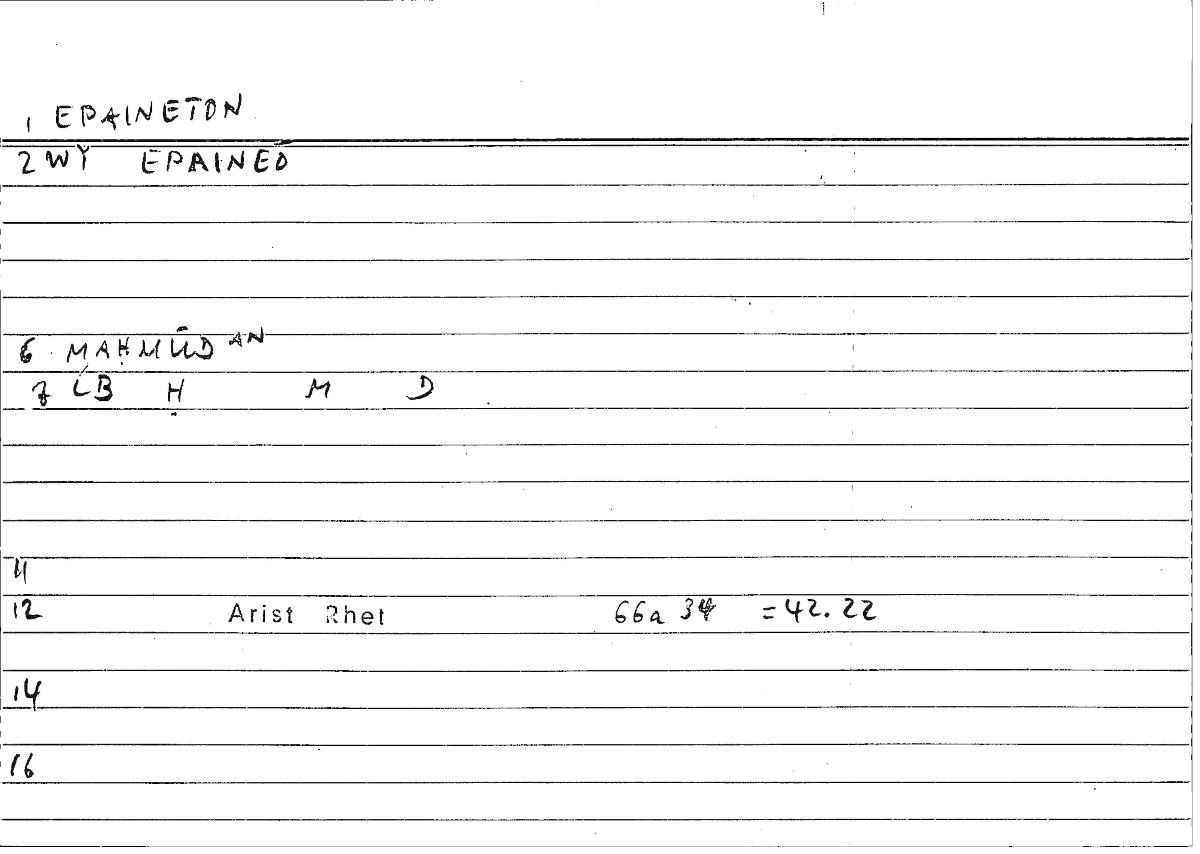 1 EPAINETON
2 WY EPAINEO
6 MAḤMŪD AN
7 LB Ḥ M D
11
12 Arist Rhet 66a 34 =42.22
14
16